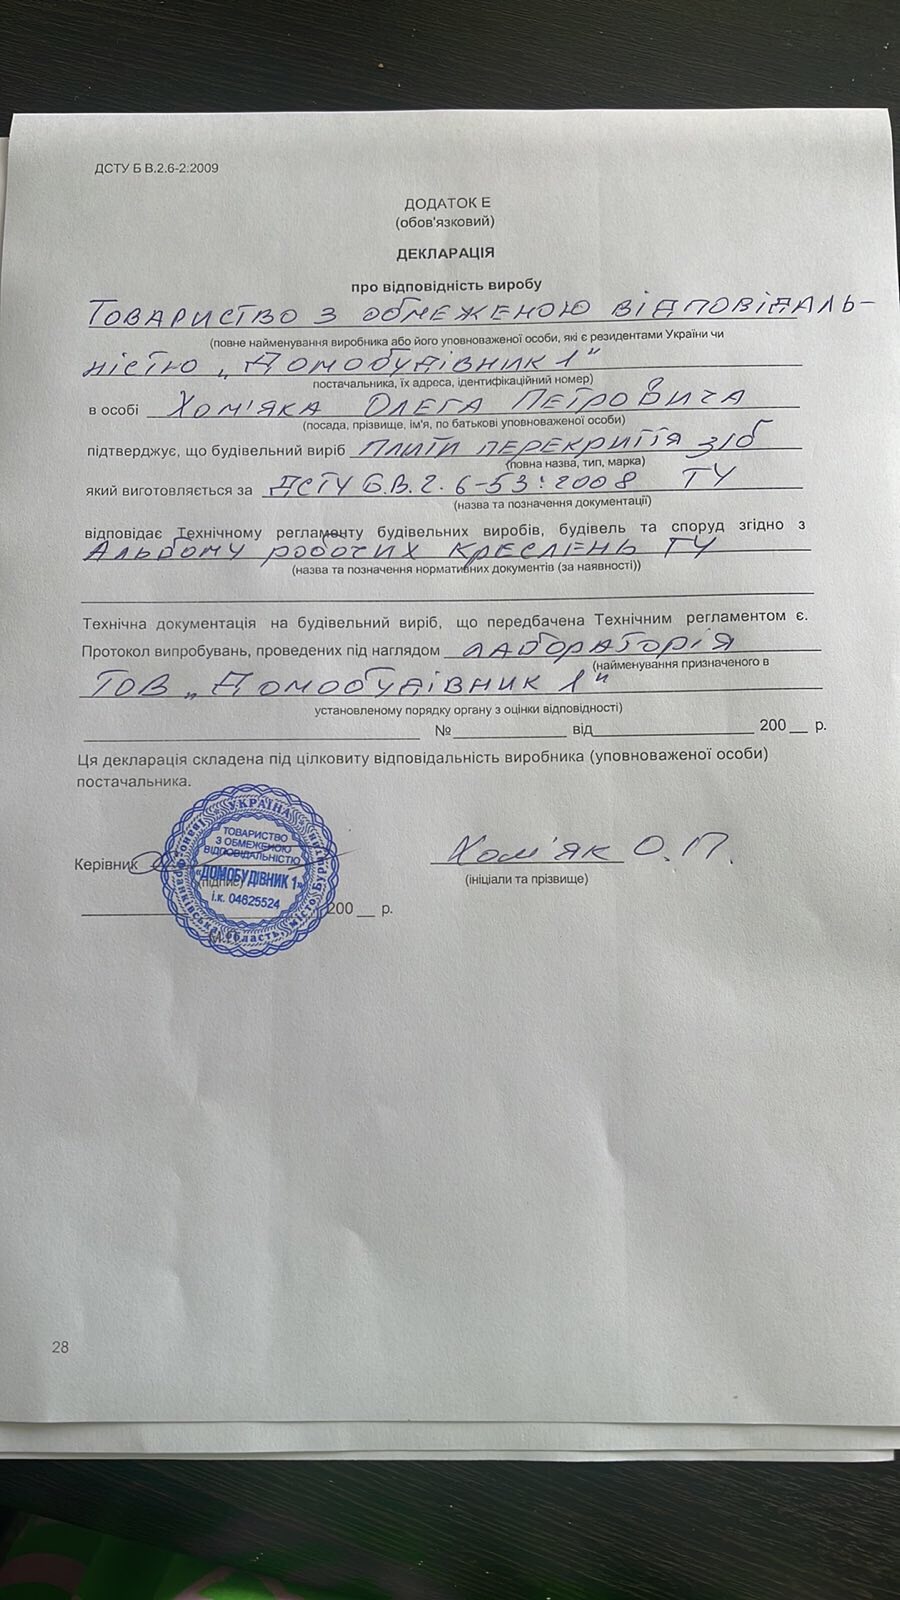 ДСТУ Б В.2.6-2:2009
ДОДАТОК Е
(обов'язковий)
ДЕКЛАРАЦІЯ
про відповідність виробу
Товариство з обмеженою відповідаль-
(повне найменування виробника або його уповноваженої особи, які є резидентами України чи
ністю „Домобудівник 1"
постачальника, їх адреса, ідентифікаційний номер)
в особі Хом'яка Олега Петровича
(посада, прізвище, ім'я, по батькові уповноваженої особи)
підтверджує, що будівельний виріб плити перекриття з/б
(повна назва, тип, марка)
який виготовляється за ДСТУ Б.В.2.6-53:2008 ТУ
(назва та позначення документації)
відповідає Технічному регламенту будівельних виробів, будівель та споруд згідно з
Альбому робочих креслень ТУ
(назва та позначення нормативних документів (за наявності))
Технічна документація на будівельний виріб, що передбачена Технічним регламентом є.
Протокол випробувань, проведених під наглядом лабораторія
(найменування призначеного в
ТОВ „Домобудівник 1"
установленому порядку органу з оцінки відповідності)
№ від 200 р.
Ця декларація складена під цілковиту відповідальність виробника (уповноваженої особи)
постачальника.
УКРАЇНА
ТОВАРИСТВО
З ОБМЕЖЕНОЮ
ВІДПОВІДАЛЬНІСТЮ
«ДОМОБУДІВНИК 1»
і.к. 04625524
Івано-Франківська область, місто Бурштин
Керівник Хом'як О.П.
(підпис) (ініціали та прізвище)
200 р.
28